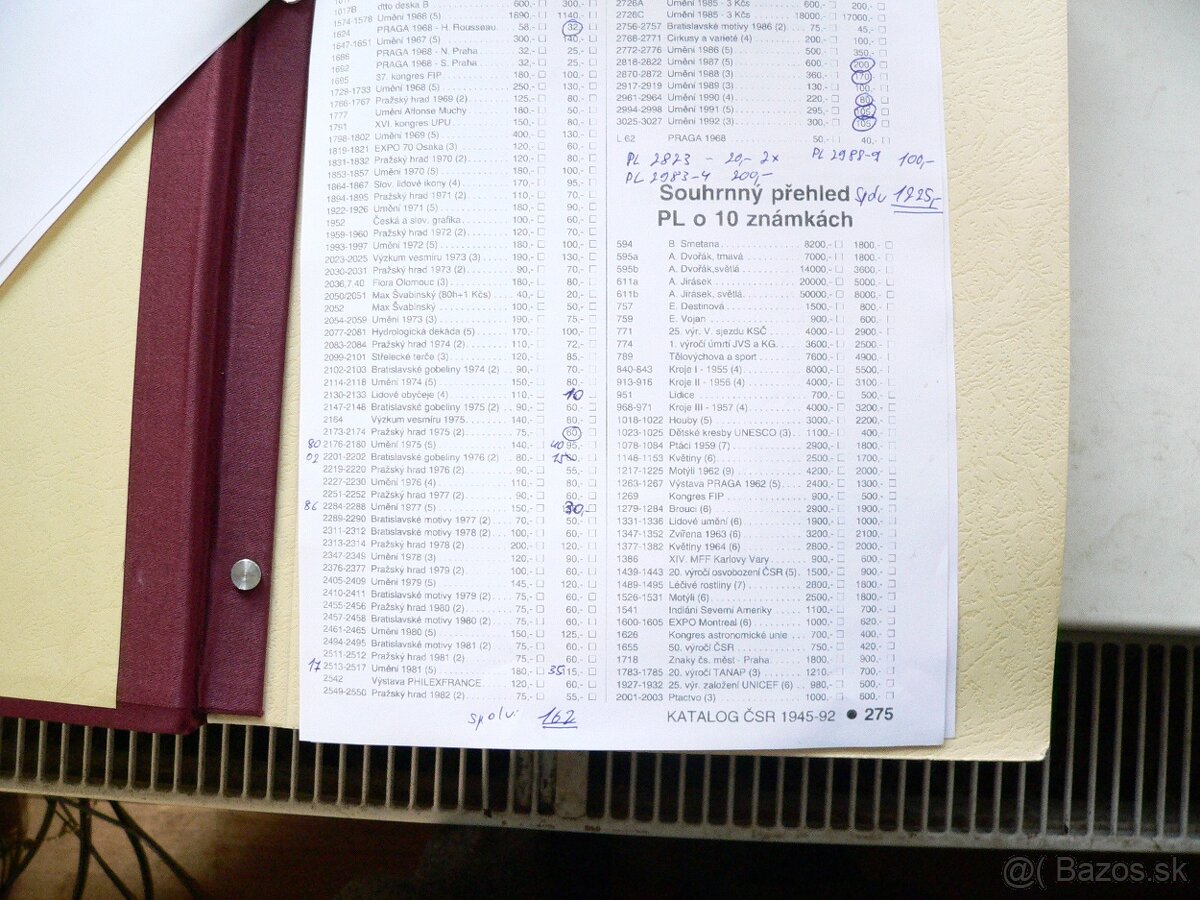 1017B dtto deska B 600,- 300,-
1574-1578 Umění 1966 (5) 1690,- 1140,-
1624 PRAGA 1968 - H. Rousseau. 58,- 32,-
1647-1651 Umění 1967 (5) 300,- 140,-
1686 PRAGA 1968 - N. Praha 32,- 25,-
1692 PRAGA 1968 - S. Praha 32,- 25,-
1695 37. kongres FIP 180,- 100,-
1728-1733 Umění 1968 (5) 250,- 130,-
1766-1767 Pražský hrad 1969 (2) 125,- 80,-
1777 Umění Alfonse Muchy 180,- 50,-
1791 XVI. kongres UPU 150,- 80,-
1798-1802 Umění 1969 (5) 400,- 130,-
1819-1821 EXPO 70 Osaka (3) 120,- 60,-
1831-1832 Pražský hrad 1970 (2) 120,- 80,-
1853-1857 Umění 1970 (5) 180,- 100,-
1864-1867 Slov. lidové ikony (4) 170,- 95,-
1894-1895 Pražský hrad 1971 (2) 110,- 70,-
1922-1926 Umění 1971 (5) 180,- 90,-
1952 Česká a slov. grafika 100,- 60,-
1959-1960 Pražský hrad 1972 (2) 120,- 70,-
1993-1997 Umění 1972 (5) 180,- 100,-
2023-2025 Výzkum vesmíru 1973 (3) 190,- 130,-
2030-2031 Pražský hrad 1973 (2) 90,- 70,-
2036,7.40 Flora Olomouc (3) 180,- 80,-
2050/2051 Max Švabinský (80h+1 Kčs) 40,- 20,-
2052 Max Švabinský 100,- 50,-
2054-2059 Umění 1973 (3) 190,- 75,-
2077-2081 Hydrologická dekáda (5) 170,- 100,-
2083-2084 Pražský hrad 1974 (2) 110,- 72,-
2099-2101 Střelecké terče (3) 120,- 85,-
2102-2103 Bratislavské gobelíny 1974 (2) 90,- 70,-
2114-2118 Umění 1974 (5) 150,- 80,-
2130-2133 Lidové obyčeje (4) 110,- 10
2147-2148 Bratislavské gobelíny 1975 (2) 90,- 60,-
2164 Výzkum vesmíru 1975 140,- 60,-
2173-2174 Pražský hrad 1975 (2) 75,- 60,-
80 2176-2180 Umění 1975 (5) 140,- 40 95,-
02 2201-2202 Bratislavské gobelíny 1976 (2) 80,- 15
2219-2220 Pražský hrad 1976 (2) 90,- 55,-
2227-2230 Umění 1976 (4) 110,- 80,-
2251-2252 Pražský hrad 1977 (2) 90,- 60,-
86 2284-2288 Umění 1977 (5) 150,- 30,-
2289-2290 Bratislavské motivy 1977 (2) 70,- 50,-
2311-2312 Bratislavské motivy 1978 (2) 100,- 60,-
2313-2314 Pražský hrad 1978 (2) 200,- 120,-
2347-2349 Umění 1978 (3) 120,- 90,-
2376-2377 Pražský hrad 1979 (2) 100,- 60,-
2405-2409 Umění 1979 (5) 145,- 120,-
2410-2411 Bratislavské motivy 1979 (2) 75,- 60,-
2455-2456 Pražský hrad 1980 (2) 75,- 60,-
2457-2458 Bratislavské motivy 1980 (2) 75,- 60,-
2461-2465 Umění 1980 (5) 150,- 125,-
2494-2495 Bratislavské motivy 1981 (2) 75,- 60,-
2511-2512 Pražský hrad 1981 (2) 75,- 60,-
17 2513-2517 Umění 1981 (5) 180,- 35
2542 Výstava PHILEXFRANCE 120,- 60,-
2549-2550 Pražský hrad 1982 (2) 75,- 55,-
spolu: 162
2726A Umění 1985 - 3 Kčs 600,- 200,-
2726C Umění 1985 - 3 Kčs 18000,- 17000,-
2756-2757 Bratislavské motivy 1986 (2) 75,- 45,-
2768-2771 Cirkusy a varieté (4) 200,- 100,-
2772-2776 Umění 1986 (5) 500,- 350,-
2818-2822 Umění 1987 (5) 600,- 200,-
2870-2872 Umění 1988 (3) 360,- 170,-
2917-2919 Umění 1989 (3) 130,- 100,-
2961-2964 Umění 1990 (4) 220,- 80,-
2994-2998 Umění 1991 (5) 295,-
3025-3027 Umění 1992 (3) 300,- 105,-
L 62 PRAGA 1968 50,- 40,-
PL 2823 - 20,- 2x PL 2988-9 100,-
PL 2983-4 200,-
Souhrnný přehled spolu 1225,-
PL o 10 známkách
594 B. Smetana 8200,- 1800,-
595a A. Dvořák, tmavá 7000,- 1800,-
595b A. Dvořák, světlá 14000,- 3600,-
611a A. Jirásek 20000,- 5000,-
611b A. Jirásek, světlá 50000,- 8000,-
757 E. Destinová 1500,- 800,-
759 E. Vojan 900,- 600,-
771 25. výr. V. sjezdu KSČ 4000,- 2900,-
774 1. výročí úmrtí JVS a KG 3600,- 2500,-
789 Tělovýchova a sport 7600,- 4900,-
840-843 Kroje I - 1955 (4) 8000,- 5500,-
913-916 Kroje II - 1956 (4) 4000,- 3100,-
951 Lidice 700,- 500,-
968-971 Kroje III - 1957 (4) 4000,- 3200,-
1018-1022 Houby (5) 3000,- 2200,-
1023-1025 Dětské kresby UNESCO (3) 1100,- 400,-
1078-1084 Ptáci 1959 (7) 2900,- 1800,-
1148-1153 Květiny (6) 2500,- 1700,-
1217-1225 Motýli 1962 (9) 4200,- 2000,-
1263-1267 Výstava PRAGA 1962 (5) 2400,- 1300,-
1269 Kongres FIP 900,- 500,-
1279-1284 Brouci (6) 2900,- 1900,-
1331-1336 Lidové umění (6) 1900,- 1000,-
1347-1352 Zvířena 1963 (6) 3200,- 2100,-
1377-1382 Květiny 1964 (6) 2800,- 2000,-
1386 XIV. MFF Karlovy Vary 900,- 600,-
1439-1443 20. výročí osvobození ČSR (5) 1500,- 900,-
1489-1495 Léčivé rostliny (7) 2800,- 1800,-
1526-1531 Motýli (6) 2500,- 1800,-
1541 Indiáni Severní Ameriky 1100,- 700,-
1600-1605 EXPO Montreal (6) 1000,- 620,-
1626 Kongres astronomické unie 700,- 400,-
1655 50. výročí ČSR 750,- 420,-
1718 Znaky čs. měst - Praha 1800,- 900,-
1783-1785 20. výročí TANAP (3) 1210,- 700,-
1927-1932 25. výr. založení UNICEF (6) 980,- 500,-
2001-2003 Ptactvo (3) 1000,- 600,-
KATALOG ČSR 1945-92 ● 275
@( Bazos.sk